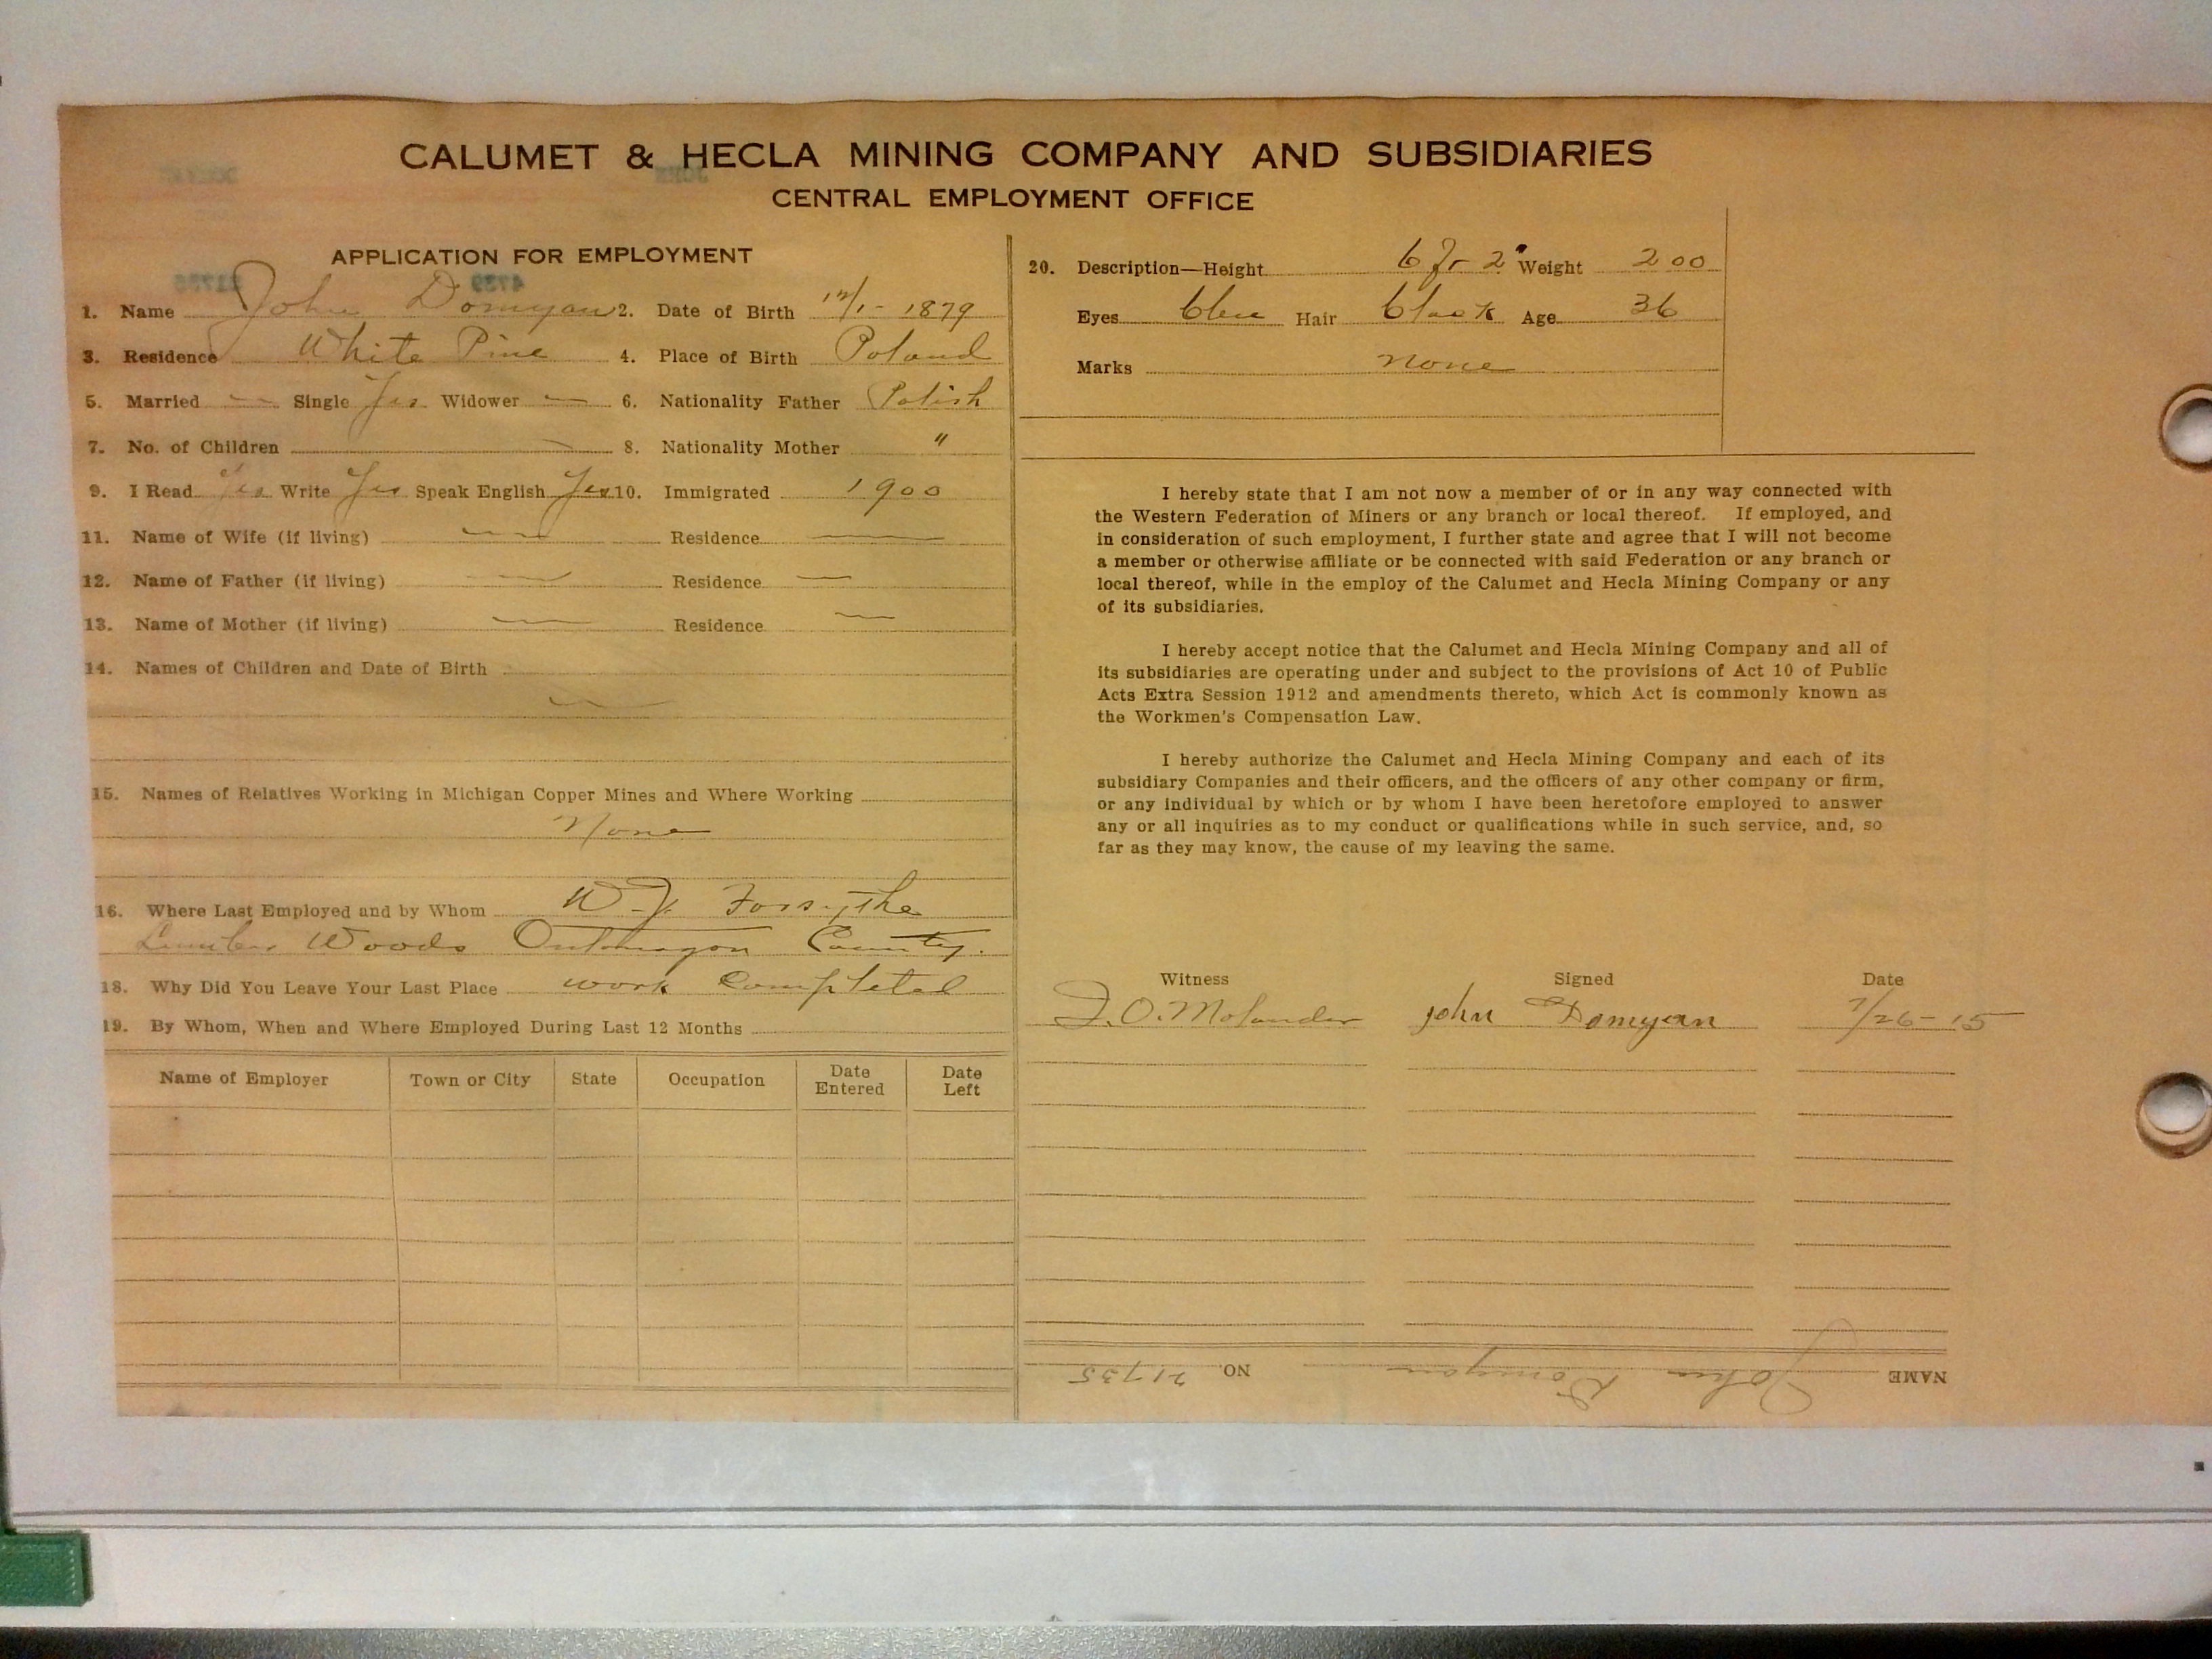 CALUMET & HECLA MINING COMPANY AND SUBSIDIARIES
CENTRAL EMPLOYMENT OFFICE
APPLICATION FOR EMPLOYMENT
1. Name John Domyan 2. Date of Birth 12/1 - 1879
3. Residence White Pine 4. Place of Birth Poland
5. Married — Single Yes Widower — 6. Nationality Father Polish
7. No. of Children — 8. Nationality Mother "
9. I Read Yes Write Yes Speak English Yes 10. Immigrated 1900
11. Name of Wife (if living) — Residence —
12. Name of Father (if living) — Residence —
13. Name of Mother (if living) — Residence —
14. Names of Children and Date of Birth
—
15. Names of Relatives Working in Michigan Copper Mines and Where Working
None
16. Where Last Employed and by Whom W. J. Forsythe
Lumber Woods Ontonagon County.
18. Why Did You Leave Your Last Place work Completed
19. By Whom, When and Where Employed During Last 12 Months
Name of Employer Town or City State Occupation Date Entered Date Left
20. Description—Height 6 ft 2" Weight 200
Eyes blue Hair black Age 36
Marks none
I hereby state that I am not now a member of or in any way connected with
the Western Federation of Miners or any branch or local thereof. If employed, and
in consideration of such employment, I further state and agree that I will not become
a member or otherwise affiliate or be connected with said Federation or any branch or
local thereof, while in the employ of the Calumet and Hecla Mining Company or any
of its subsidiaries.
I hereby accept notice that the Calumet and Hecla Mining Company and all of
its subsidiaries are operating under and subject to the provisions of Act 10 of Public
Acts Extra Session 1912 and amendments thereto, which Act is commonly known as
the Workmen's Compensation Law.
I hereby authorize the Calumet and Hecla Mining Company and each of its
subsidiary Companies and their officers, and the officers of any other company or firm,
or any individual by which or by whom I have been heretofore employed to answer
any or all inquiries as to my conduct or qualifications while in such service, and, so
far as they may know, the cause of my leaving the same.
Witness Signed Date
J. O. Molander John Domyan 7/26-15
NAME John Domyan NO. 21735